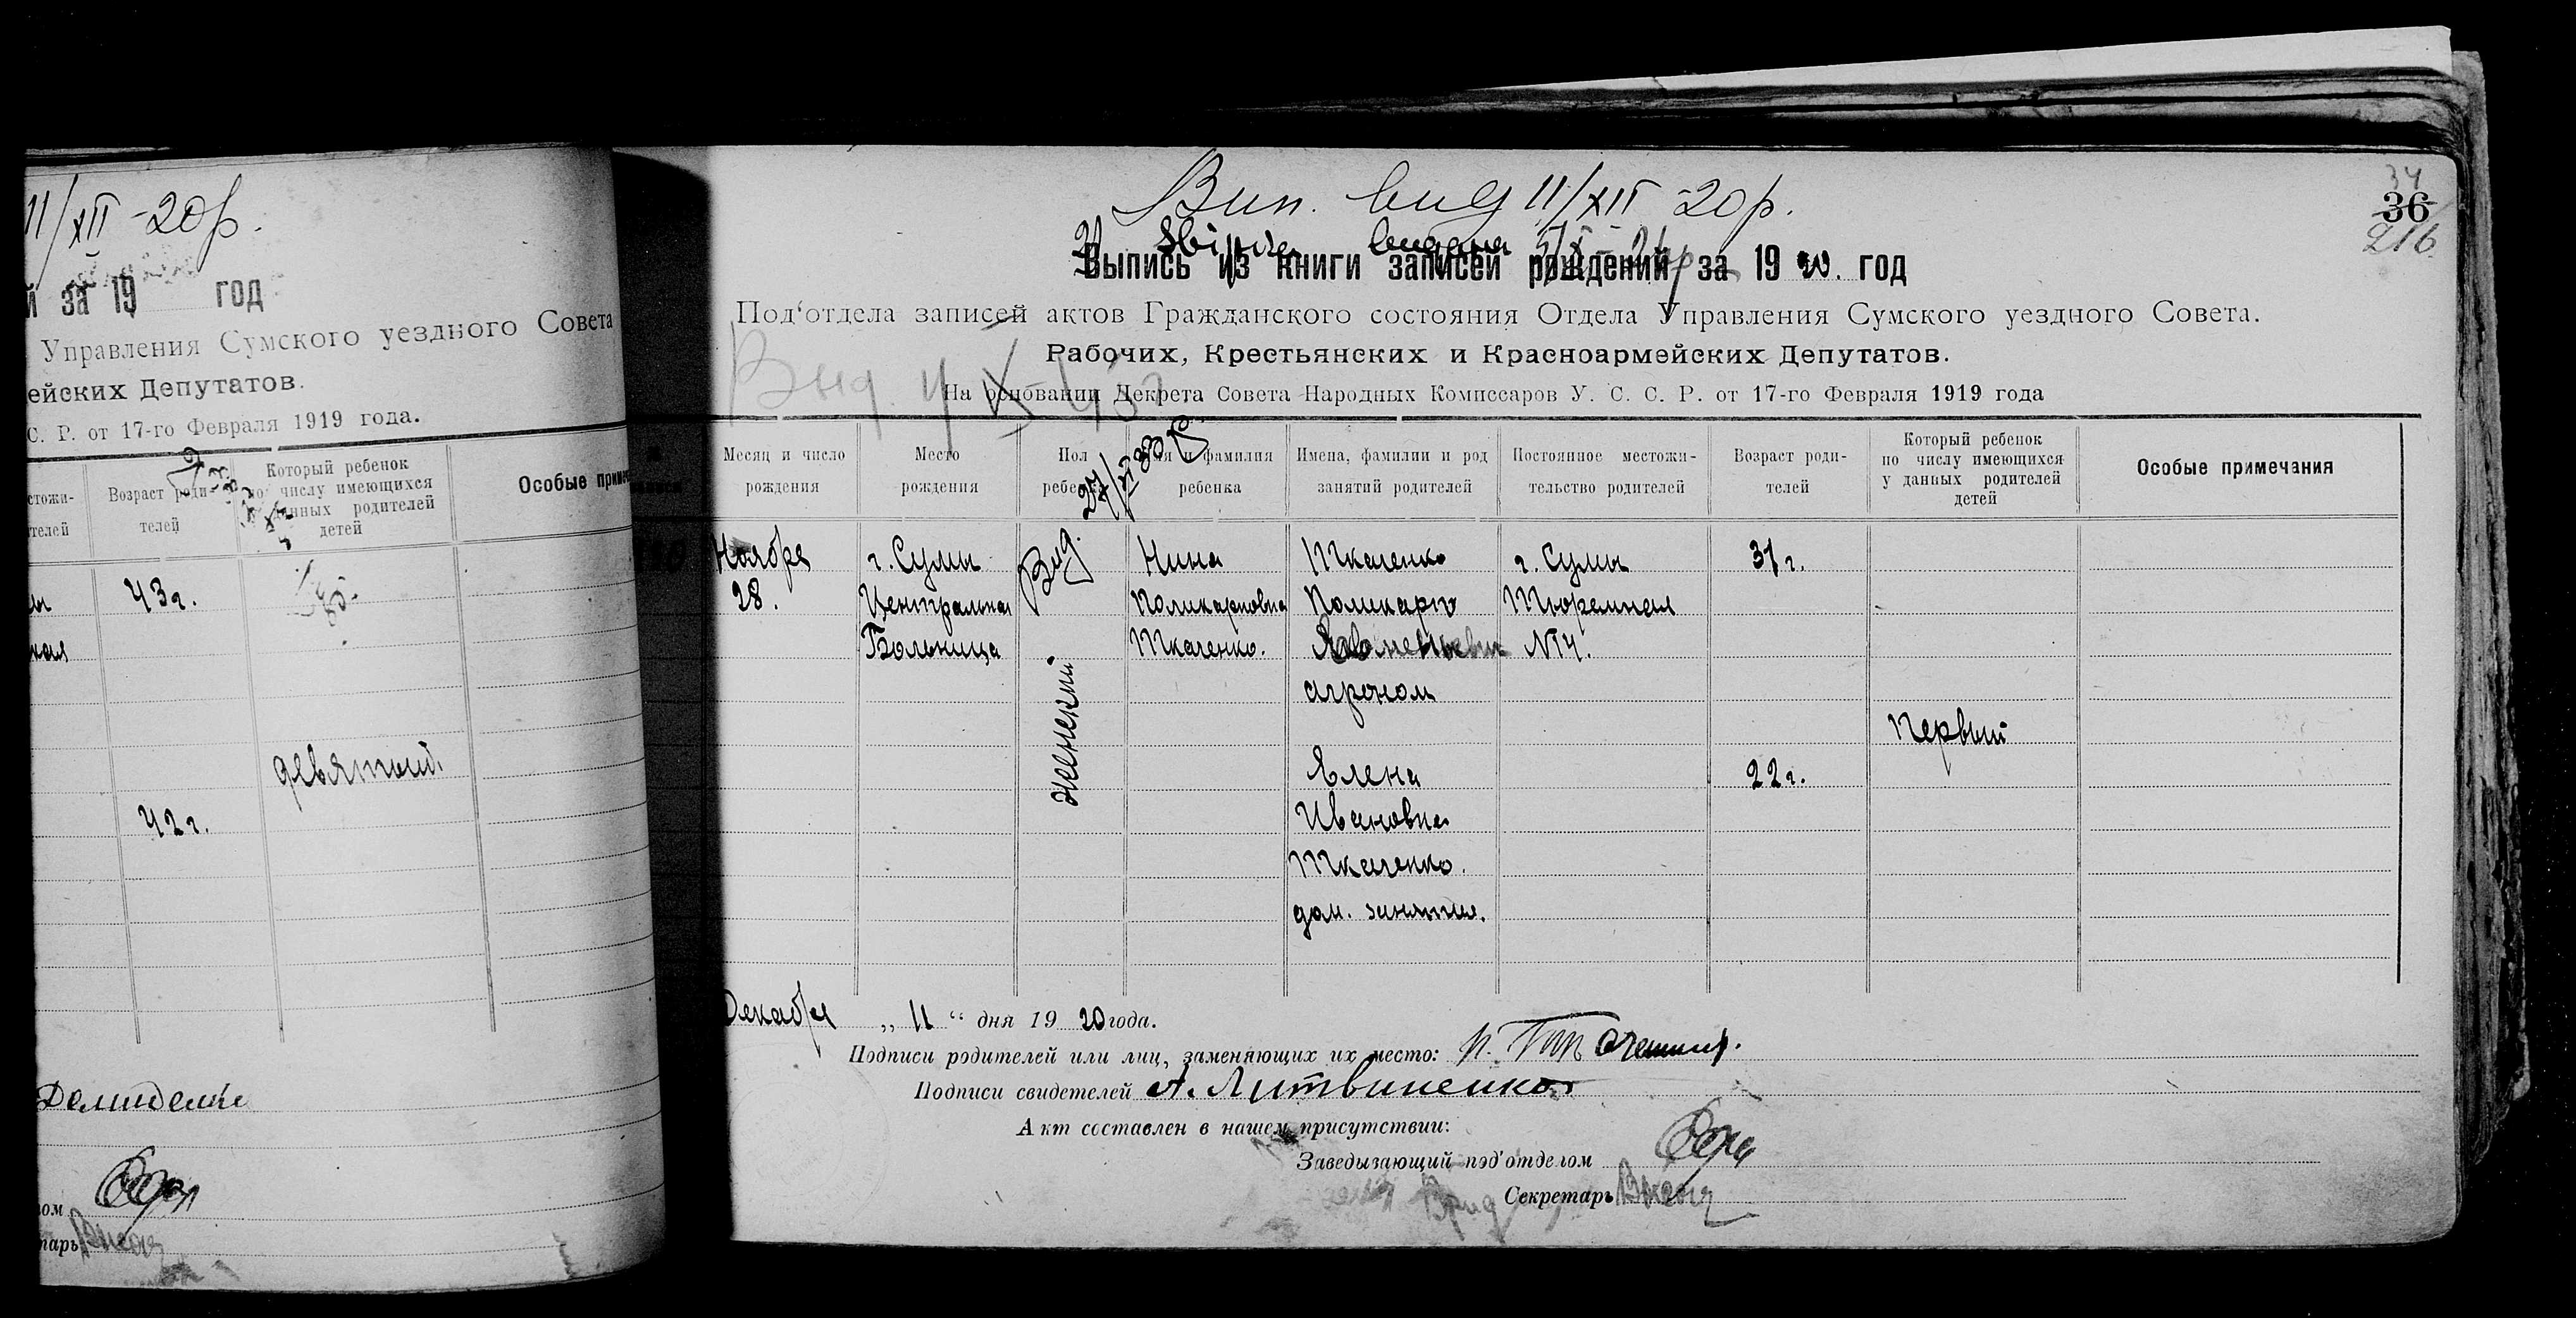 11/XII -20р.
й за 19 год
Управления Сумского уездного Совета
ейских Депутатов.
С. Р. от 17-го Февраля 1919 года.
стожи-
телей
Возраст роди-
телей
Который ребенок
по числу имеющихся
у данных родителей
детей
Особые приме
43г.
кая
девятый.
42г.
ом
тарь
34
36
216
Вип. вид 11/XII -20р.
Выпись из книги записей рождений за 1920. год
Под'отдела записей актов Гражданского состояния Отдела Управления Сумского уездного Совета.
Рабочих, Крестьянских и Красноармейских Депутатов.
На основании Декрета Совета Народных Комиссаров У. С. С. Р. от 17-го Февраля 1919 года
Месяц и число
рождения
Место
рождения
Пол
ребенка
Имя и фамилия
ребенка
Имена, фамилии и род
занятий родителей
Постоянное местожи-
тельство родителей
Возраст роди-
телей
Который ребенок
по числу имеющихся
у данных родителей
детей
Особые примечания
Ноября
28.
г. Сумы
Центральная
Больница
Вид.
женский
Нина
Поликарповна
Ткаченко.
Ткаченко
Поликарп
агроном
Елена
Ивановна
Ткаченко.
дом. занятия.
г. Сумы
Тюремная
№14.
31г.
22г.
Первый
Декабря „ 11 “ дня 1920 года.
Подписи родителей или лиц, заменяющих их место:
Подписи свидетелей А. Литвиненко
Акт составлен в нашем присутствии:
Заведывающий под'отделом
Секретарь